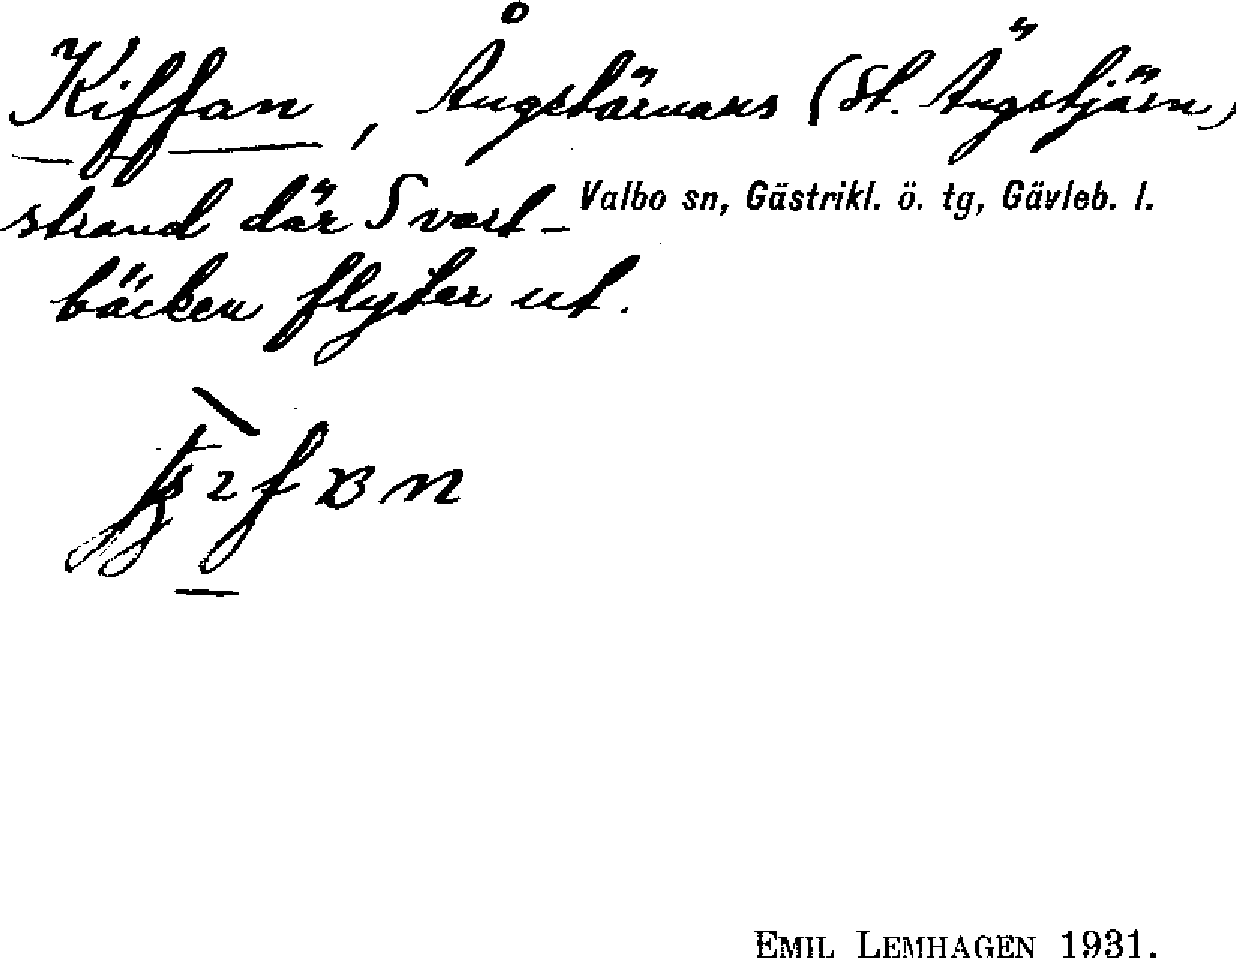 Kiffan, Ångstärnans (St. Ängstjärn,
strand där Svart-
Valbo sn, Gästrikl. ö. tg, Gävleb. l.
bäcken flyter ut.
EMIL LEMHAGEN 1931.